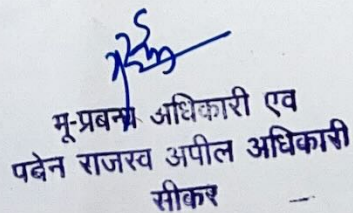 भू-प्रबन्ध अधिकारी एव
पबेन राजस्व अपील अधिकारी
सीकर